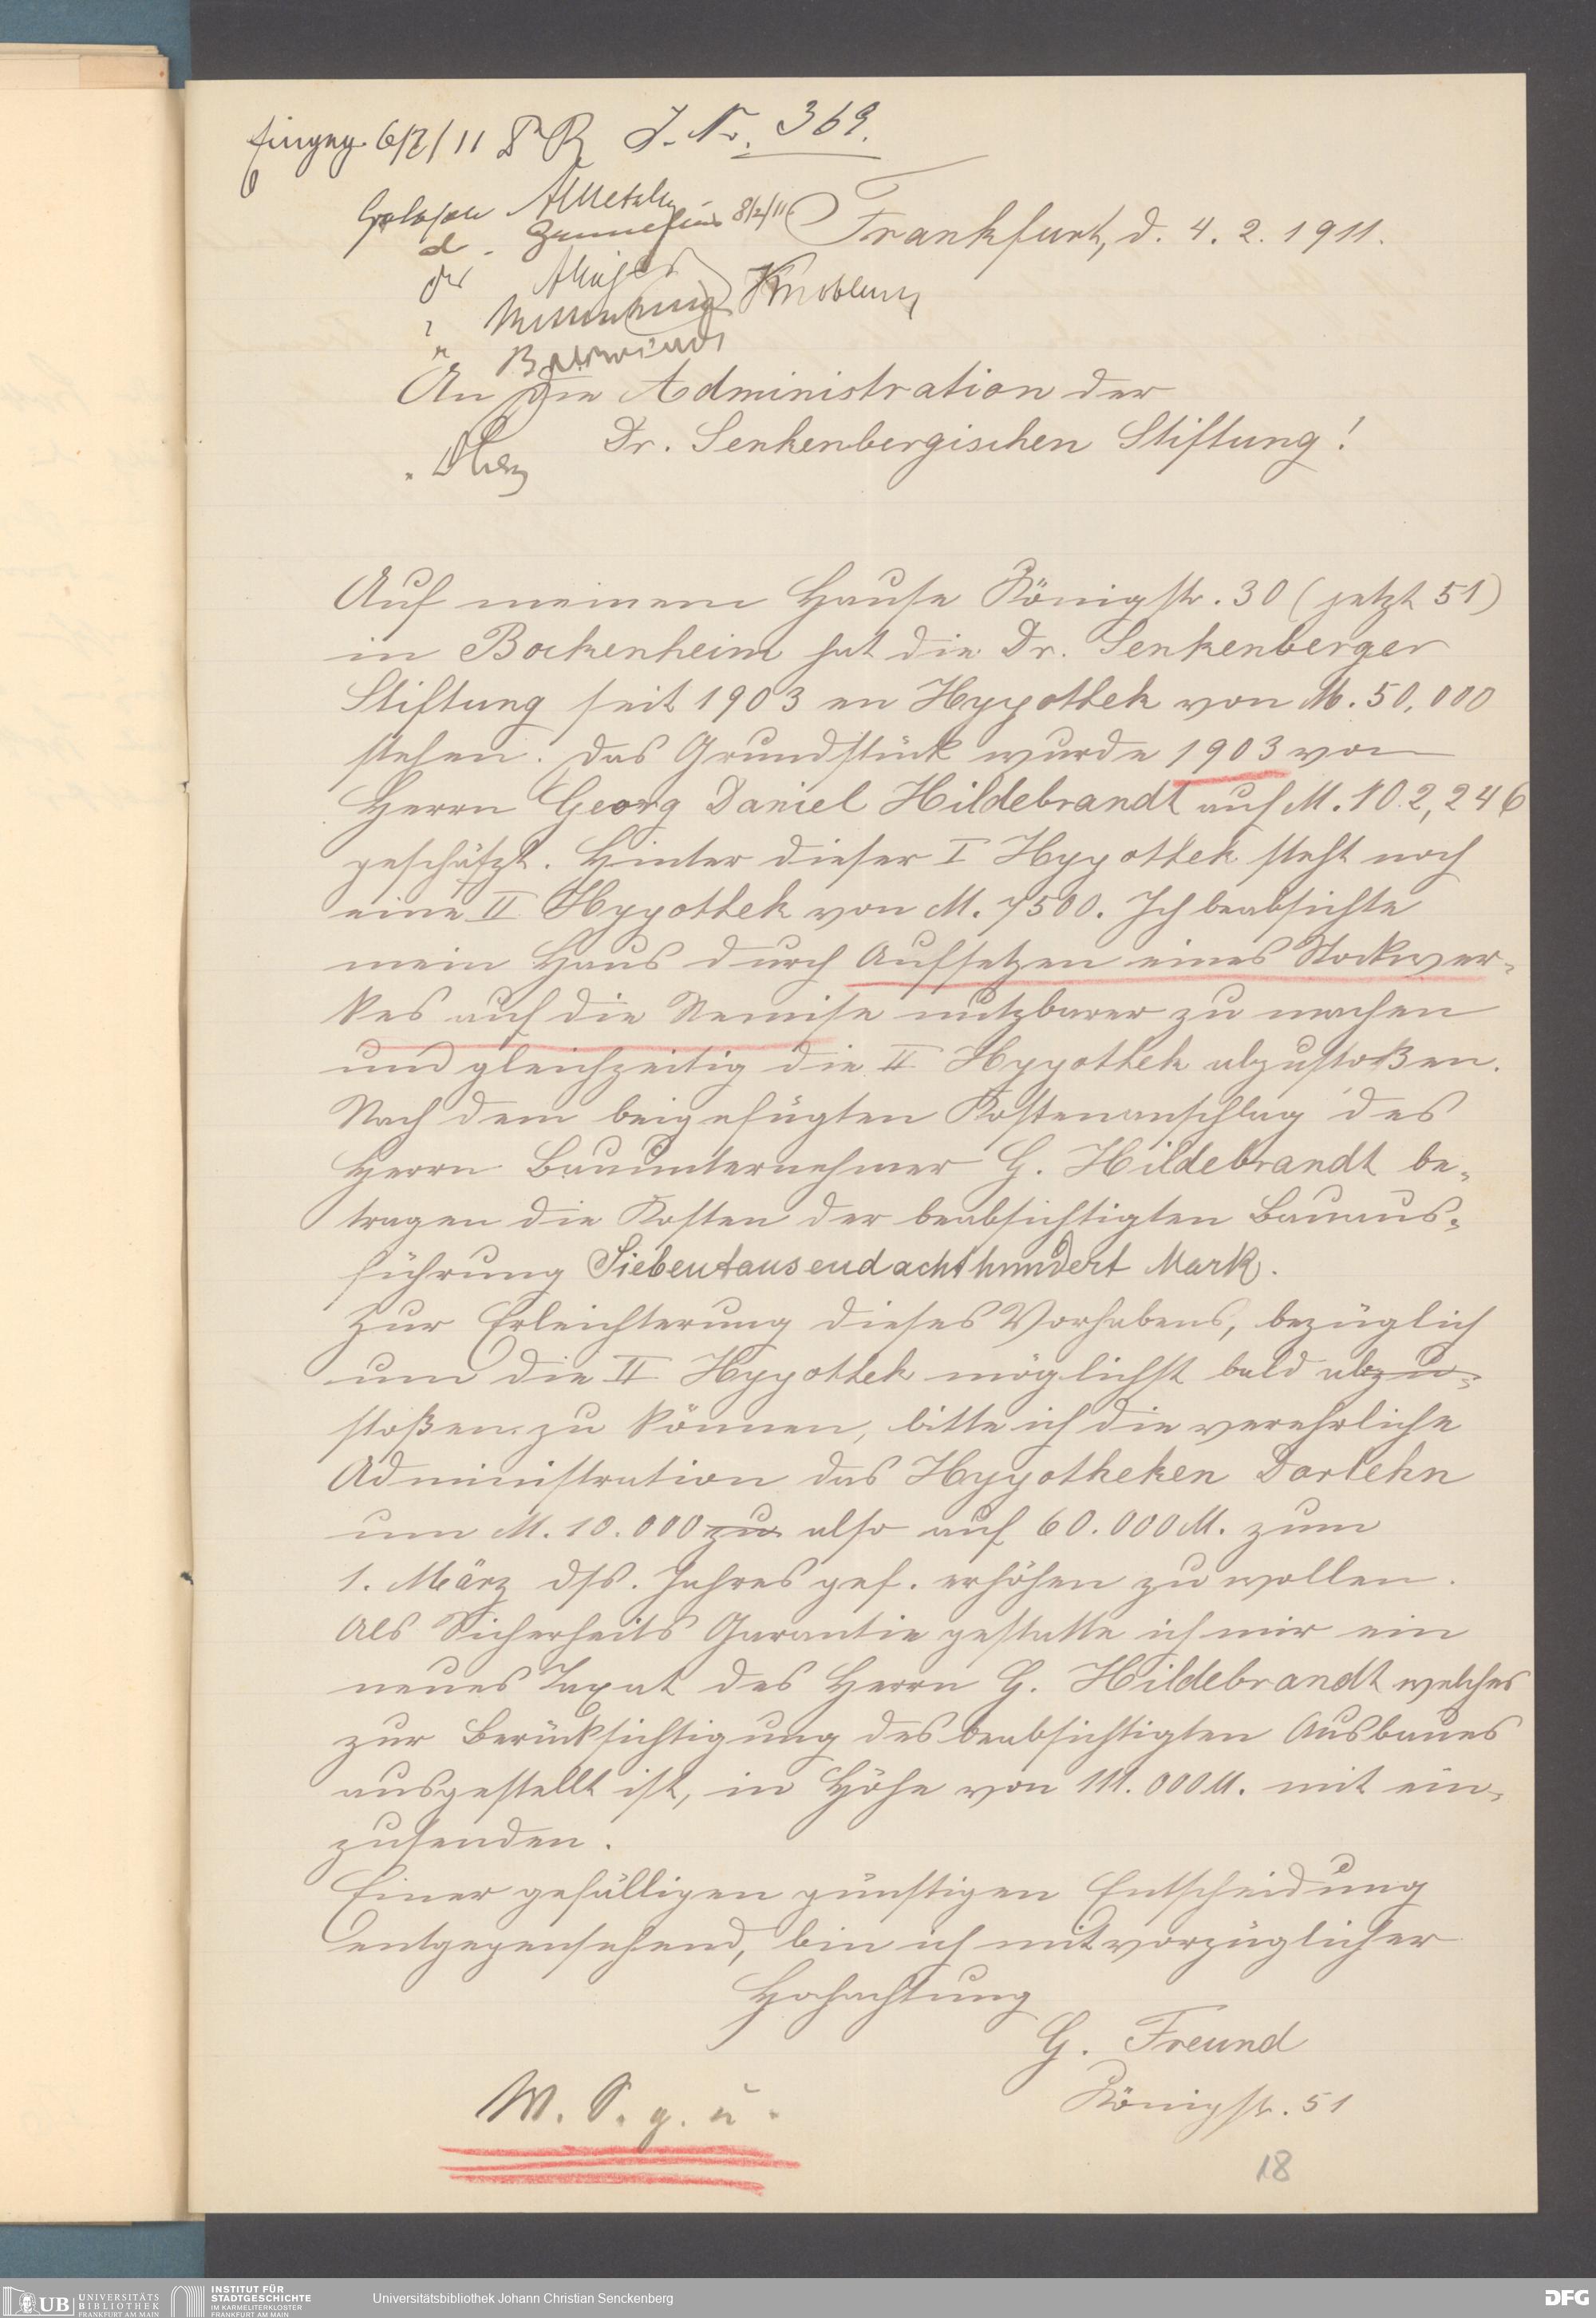 Eingang 6/2/11 J. Nr. 369.
Gelesen A Metzler 8/2/11
Frankfurt, d. 4. 2. 1911.
Knoblauch
An die Administration der
Dr. Senkenbergischen Stiftung!
Auf meinem Hause Königstr. 30 (jetzt 51)
in Bockenheim hat die Dr. Senkenberger
Stiftung seit 1903 en Hypothek von M. 50.000
stehen. Das Grundstück wurde 1903 von
Herrn Georg Daniel Hildebrandt auf M. 102,246
geschätzt. Hinter dieser I Hypothek steht noch
eine II Hypothek von M. 7500. Ich beabsichte
mein Haus durch Aufsetzen eines Stockwer-
kes auf die Remise nutzbarer zu machen
und gleichzeitig die II Hypothek abzustoßen.
Nach dem beigefügten Kostenanschlag des
Herrn Bauunternehmer G. Hildebrandt be-
tragen die Kosten der beabsichtigten Bauaus-
führung Siebentausendachthundert Mark.
Zur Erleichterung dieses Vorhabens, bezüglich
um die II Hypothek möglichst bald abzu-
stoßen zu können, bitte ich die verehrliche
Administration das Hypotheken Darlehn
um M. 10.000 zu also auf 60.000 M. zum
1. März dss. Jahres gef. erhöhen zu wollen.
Als Sicherheits Garantie gestatte ich mir ein
neues Taxat des Herrn G. Hildebrandt welches
zur Berücksichtigung des beabsichtigten Ausbaues
ausgestellt ist, in Höhe von 111.000 M. mit ein-
zusenden.
Einer gefälligen günstigen Entscheidung
entgegensehend, bin ich mit vorzüglicher
Hochachtung
G. Freund
Königstr. 51
W. S. g. u.
18
UB UNIVERSITÄTS BIBLIOTHEK FRANKFURT AM MAIN
INSTITUT FÜR STADTGESCHICHTE IM KARMELITERKLOSTER FRANKFURT AM MAIN
Universitätsbibliothek Johann Christian Senckenberg
DFG